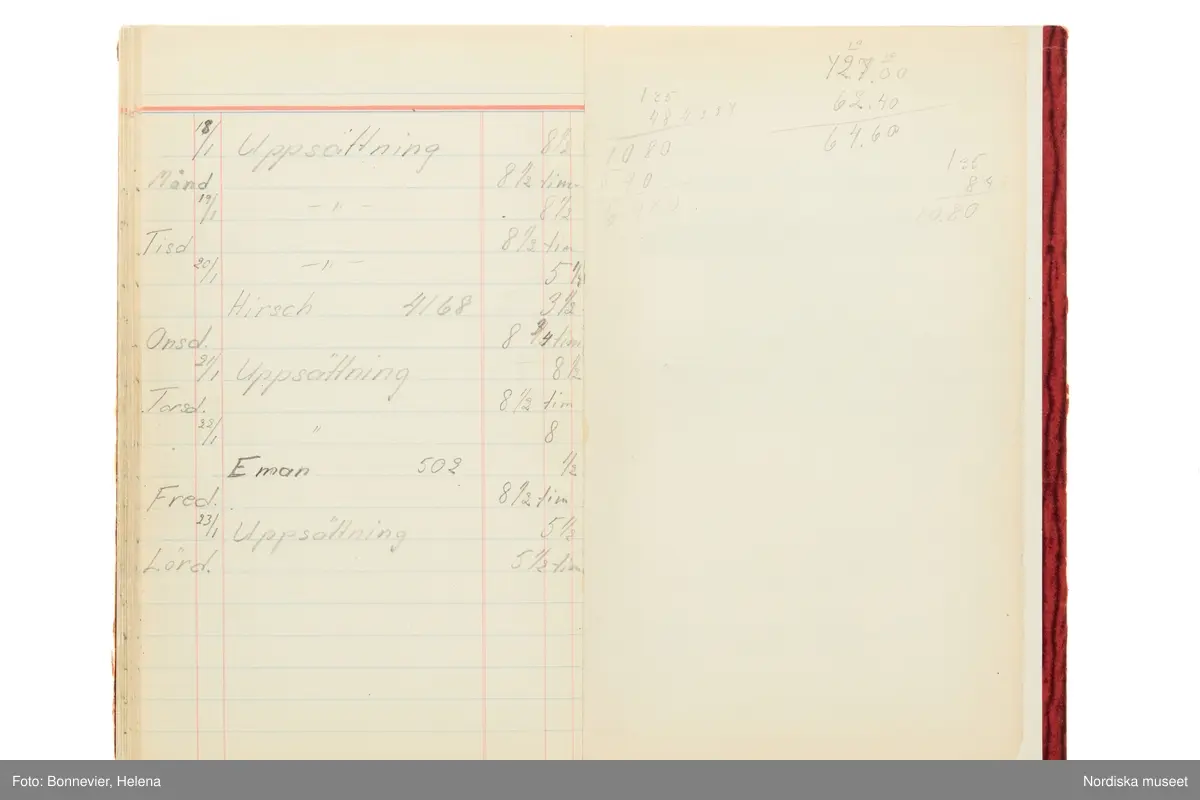 18/1 Uppsättning 8 1/2
Månd 8 1/2 tim
19/1 –"– 8 1/2
Tisd 8 1/2 tim
20/1 –"– 5 1/2
Hirsch 4168 3 1/2
Onsd. 8 3/4 tim
21/1 Uppsättning 8 1/2
Torsd. 8 1/2 tim
22/1 " 8
Eman 502 1/2
Fred. 8 1/2 tim
23/1 Uppsättning 5 1/2
Lörd. 5 1/2 tim
10 10
127.00
62.40
64.60
135
1080
135
8
80
Foto: Bonnevier, Helena
Nordiska museet